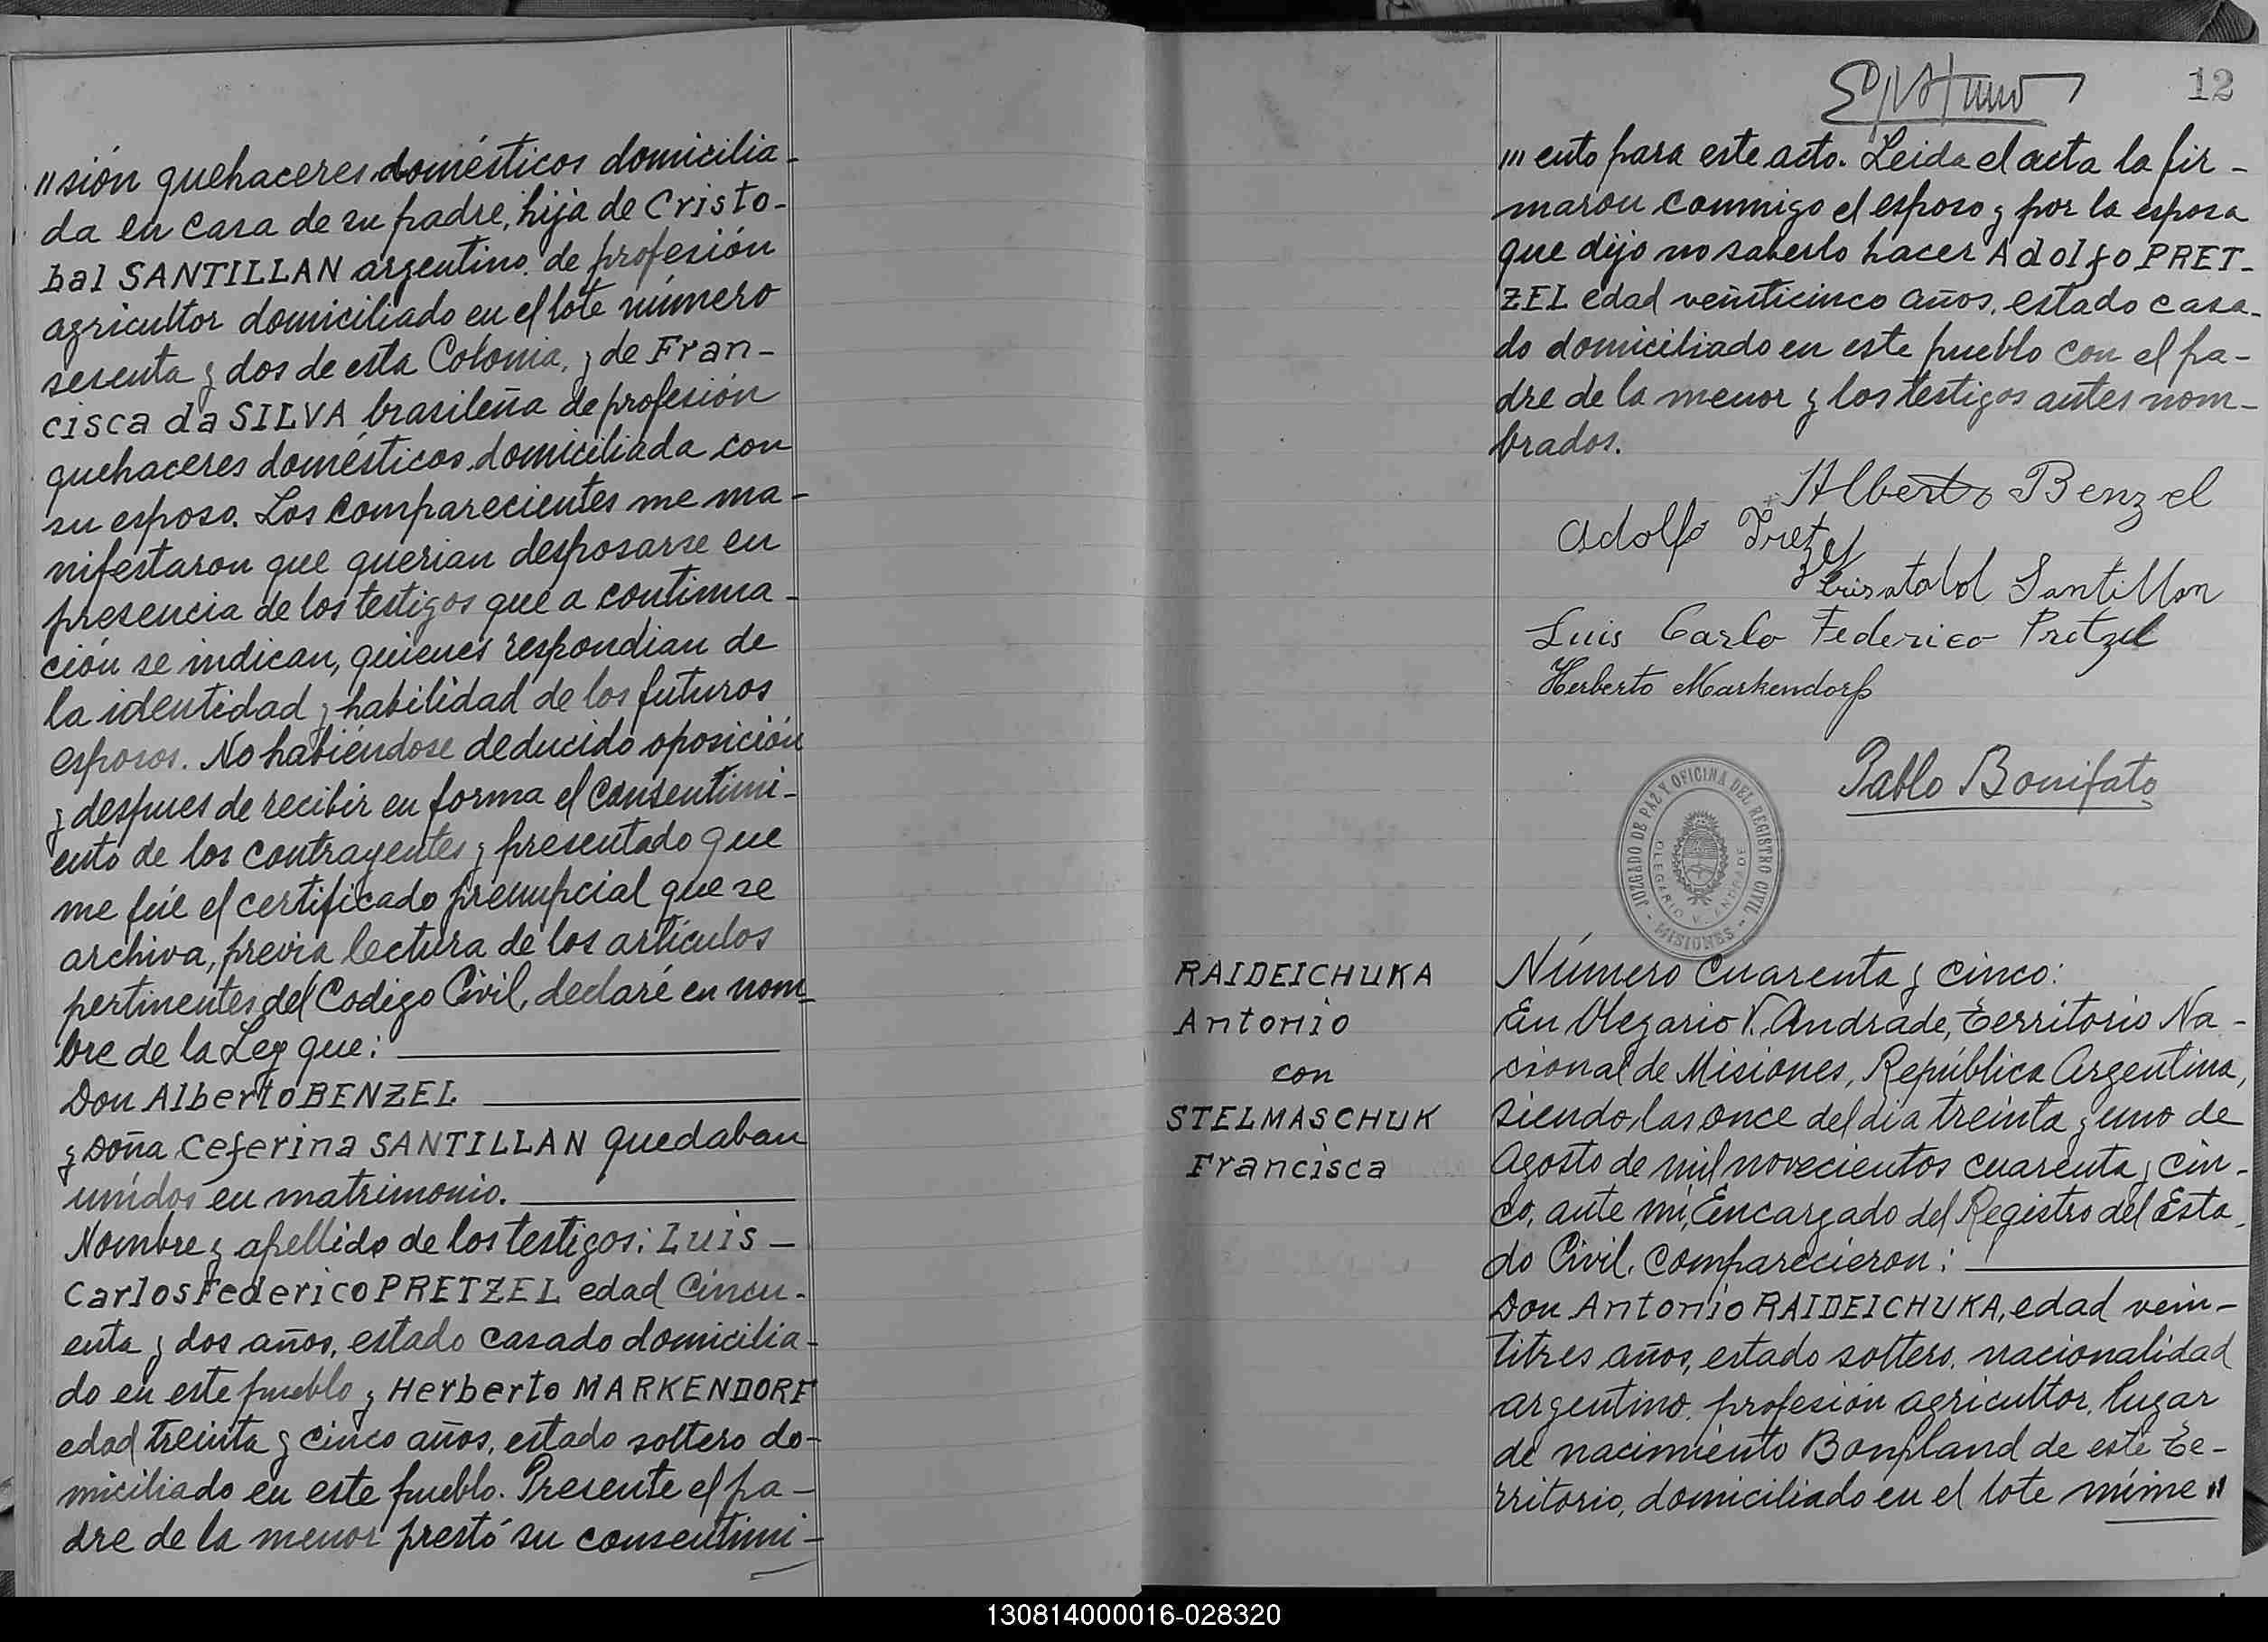 "sión quehaceres domésticos domicilia-
da en casa de su padre, hija de Cristo-
bal SANTILLAN argentino de profesión
agricultor domiciliado en el lote número
sesenta y dos de esta Colonia, y de Fran-
cisca da SILVA brasileña de profesión
quehaceres domésticos domiciliada con
su esposo. Los comparecientes me ma-
nifestaron que querian desposarse en
presencia de los testigos que a continua-
ción se indican, quienes respondian de
la identidad y habilidad de los futuros
esposos. No habiéndose deducido oposición
y despues de recibir en forma el consentimi-
ento de los contrayentes y presentado que
me fué el certificado prenupcial que se
archiva, previa lectura de los artículos
pertinentes del Codigo Civil, declaré en nom-
bre de la Ley que:
Don Alberto BENZEL
y Doña Ceferina SANTILLAN quedaban
unidos en matrimonio.
Nombre y apellido de los testigos: Luis
Carlos Federico PRETZEL edad cincu-
enta y dos años, estado casado domicilia-
do en este pueblo y Herberto MARKENDORF
edad treinta y cinco años, estado soltero do-
miciliado en este pueblo. Presente el pa-
dre de la menor prestó su consentimi-
12
"' ento para este acto. Leida el acta la fir-
maron conmigo el esposo y por la esposa
que dijo no saberlo hacer Adolfo PRET-
ZEL edad veinticinco años, estado casa-
do domiciliado en este pueblo con el pa-
dre de la menor y los testigos antes nom-
brados.
Alberto Benzel
Adolfo Pretzel
Cristobol Santillan
Luis Carlo Federico Pretzel
Herberto Markendorf
Pablo Bonifato
JUZGADO DE PAZ Y OFICINA DEL REGISTRO CIVIL
OLEGARIO V. ANDRADE
- MISIONES -
RAIDEICHUKA
Antonio
con
STELMASCHUK
Francisca
Número Cuarenta y cinco:
En Olegario V. Andrade, Territorio Na-
cional de Misiones, República Argentina,
siendo las once del dia treinta y uno de
Agosto de mil novecientos cuarenta y cin-
co, ante mi, Encargado del Registro del Esta-
do Civil, comparecieron:
Don Antonio RAIDEICHUKA, edad vein-
titres años, estado soltero, nacionalidad
argentino, profesión agricultor, lugar
de nacimiento Bonpland de este Te-
rritorio, domiciliado en el lote núme "
130814000016-028320